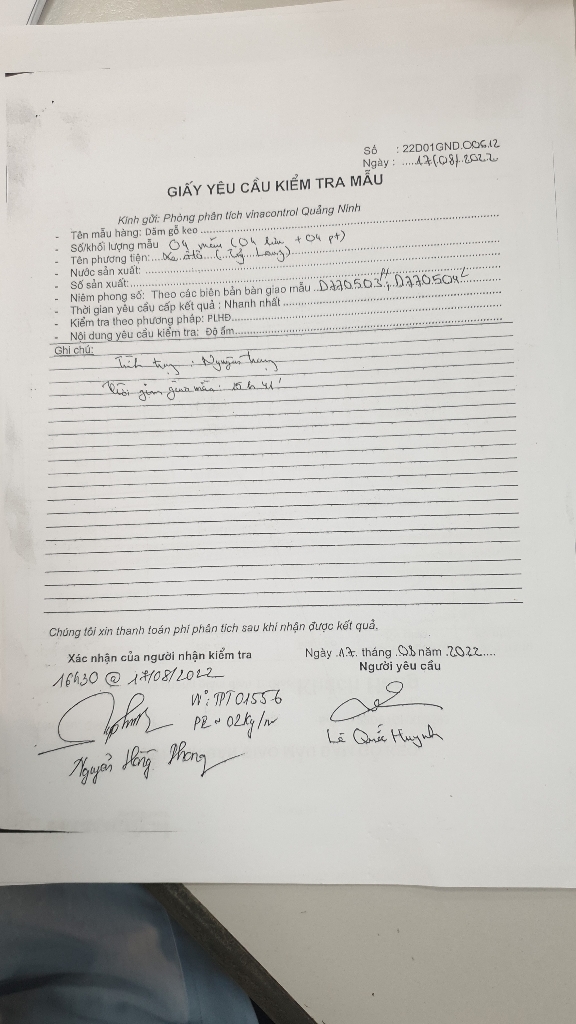 Số : 22D01GND.006.12
Ngày : ....17/08/2022
GIẤY YÊU CẦU KIỂM TRA MẪU
Kính gửi: Phòng phân tích vinacontrol Quảng Ninh
- Tên mẫu hàng: Dăm gỗ keo
- Số/khối lượng mẫu 04 mẫu (04 lưu + 04 pt)
- Tên phương tiện:... Xe ôtô
- Nước sản xuất:
- Số sản xuất:
- Niêm phong số: Theo các biên bản bàn giao mẫu D770503 pt; D770504 L
- Thời gian yêu cầu cấp kết quả : Nhanh nhất
- Kiểm tra theo phương pháp: PLHĐ
- Nội dung yêu cầu kiểm tra: Độ ẩm
Ghi chú:
Tình trạng : Nguyên trạng
Thời gian giao mẫu: 15h41'
Chúng tôi xin thanh toán phí phân tích sau khi nhận được kết quả.
Xác nhận của người nhận kiểm tra
Ngày .17. tháng .08 năm .2022....
Người yêu cầu
16h30 @ 17/08/2022
N°: TPT01556
02kg/
Lê Quốc Huynh
Nguyễn Hồng Phong